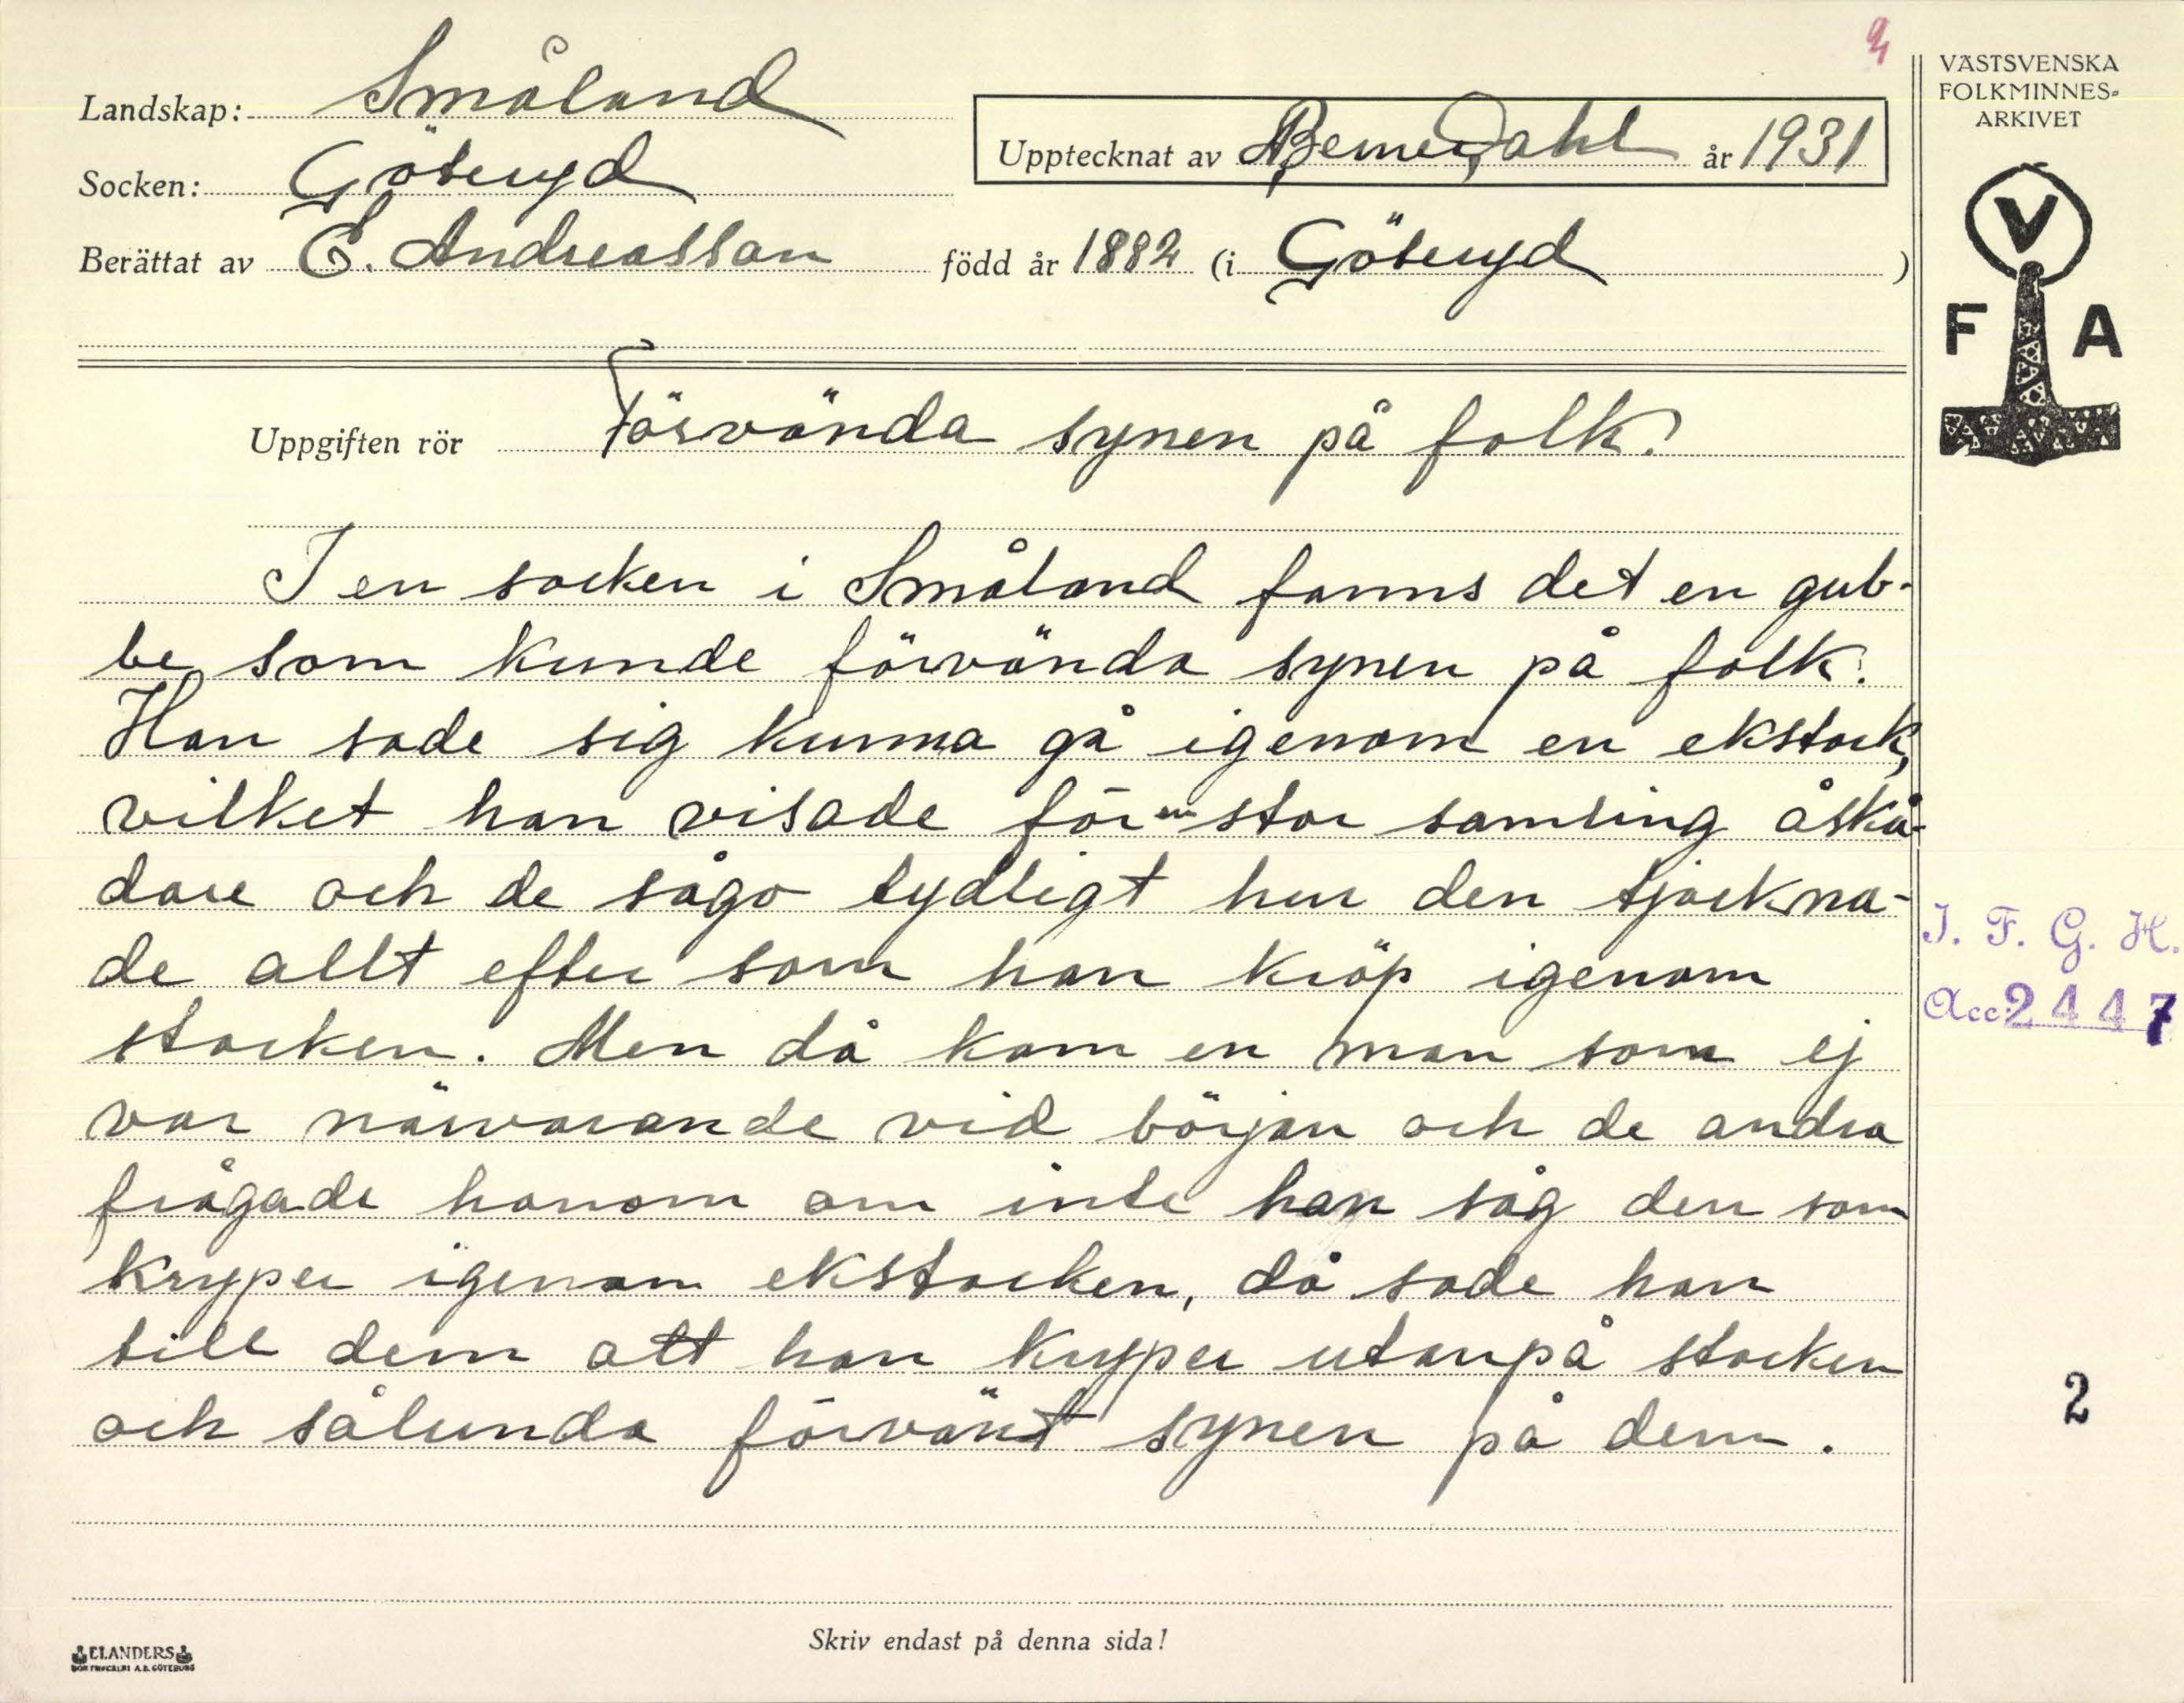 Landskap: Småland
Socken: Göteryd
Berättat av E. Andreasson född år 1882 (i Göteryd)
Upptecknat av Berne Dahl år 1931
VÄSTSVENSKA
FOLKMINNES-
ARKIVET
V
F A
Uppgiften rör Förvända synen på folk.
I en socken i Småland fanns det en gub-
be som kunde förvända synen på folk.
Han sade sig kunna gå igenom en ekstock,
vilket han visade för en stor samling åskå-
dare och de sågo tydligt hur den tjockna-
de allt efter som han kröp igenom
stocken. Men då kom en man som ej
var närvarande vid början och de andra
frågade honom om inte han såg den som
kryper igenom ekstocken, då sade han
till dem att han kryper utanpå stocken
och sålunda förvänt synen på dem.
I. F. G. H.
Acc. 2447
2
Skriv endast på denna sida!
ELANDERS
BOKTRYCKERI A.B. GÖTEBORG